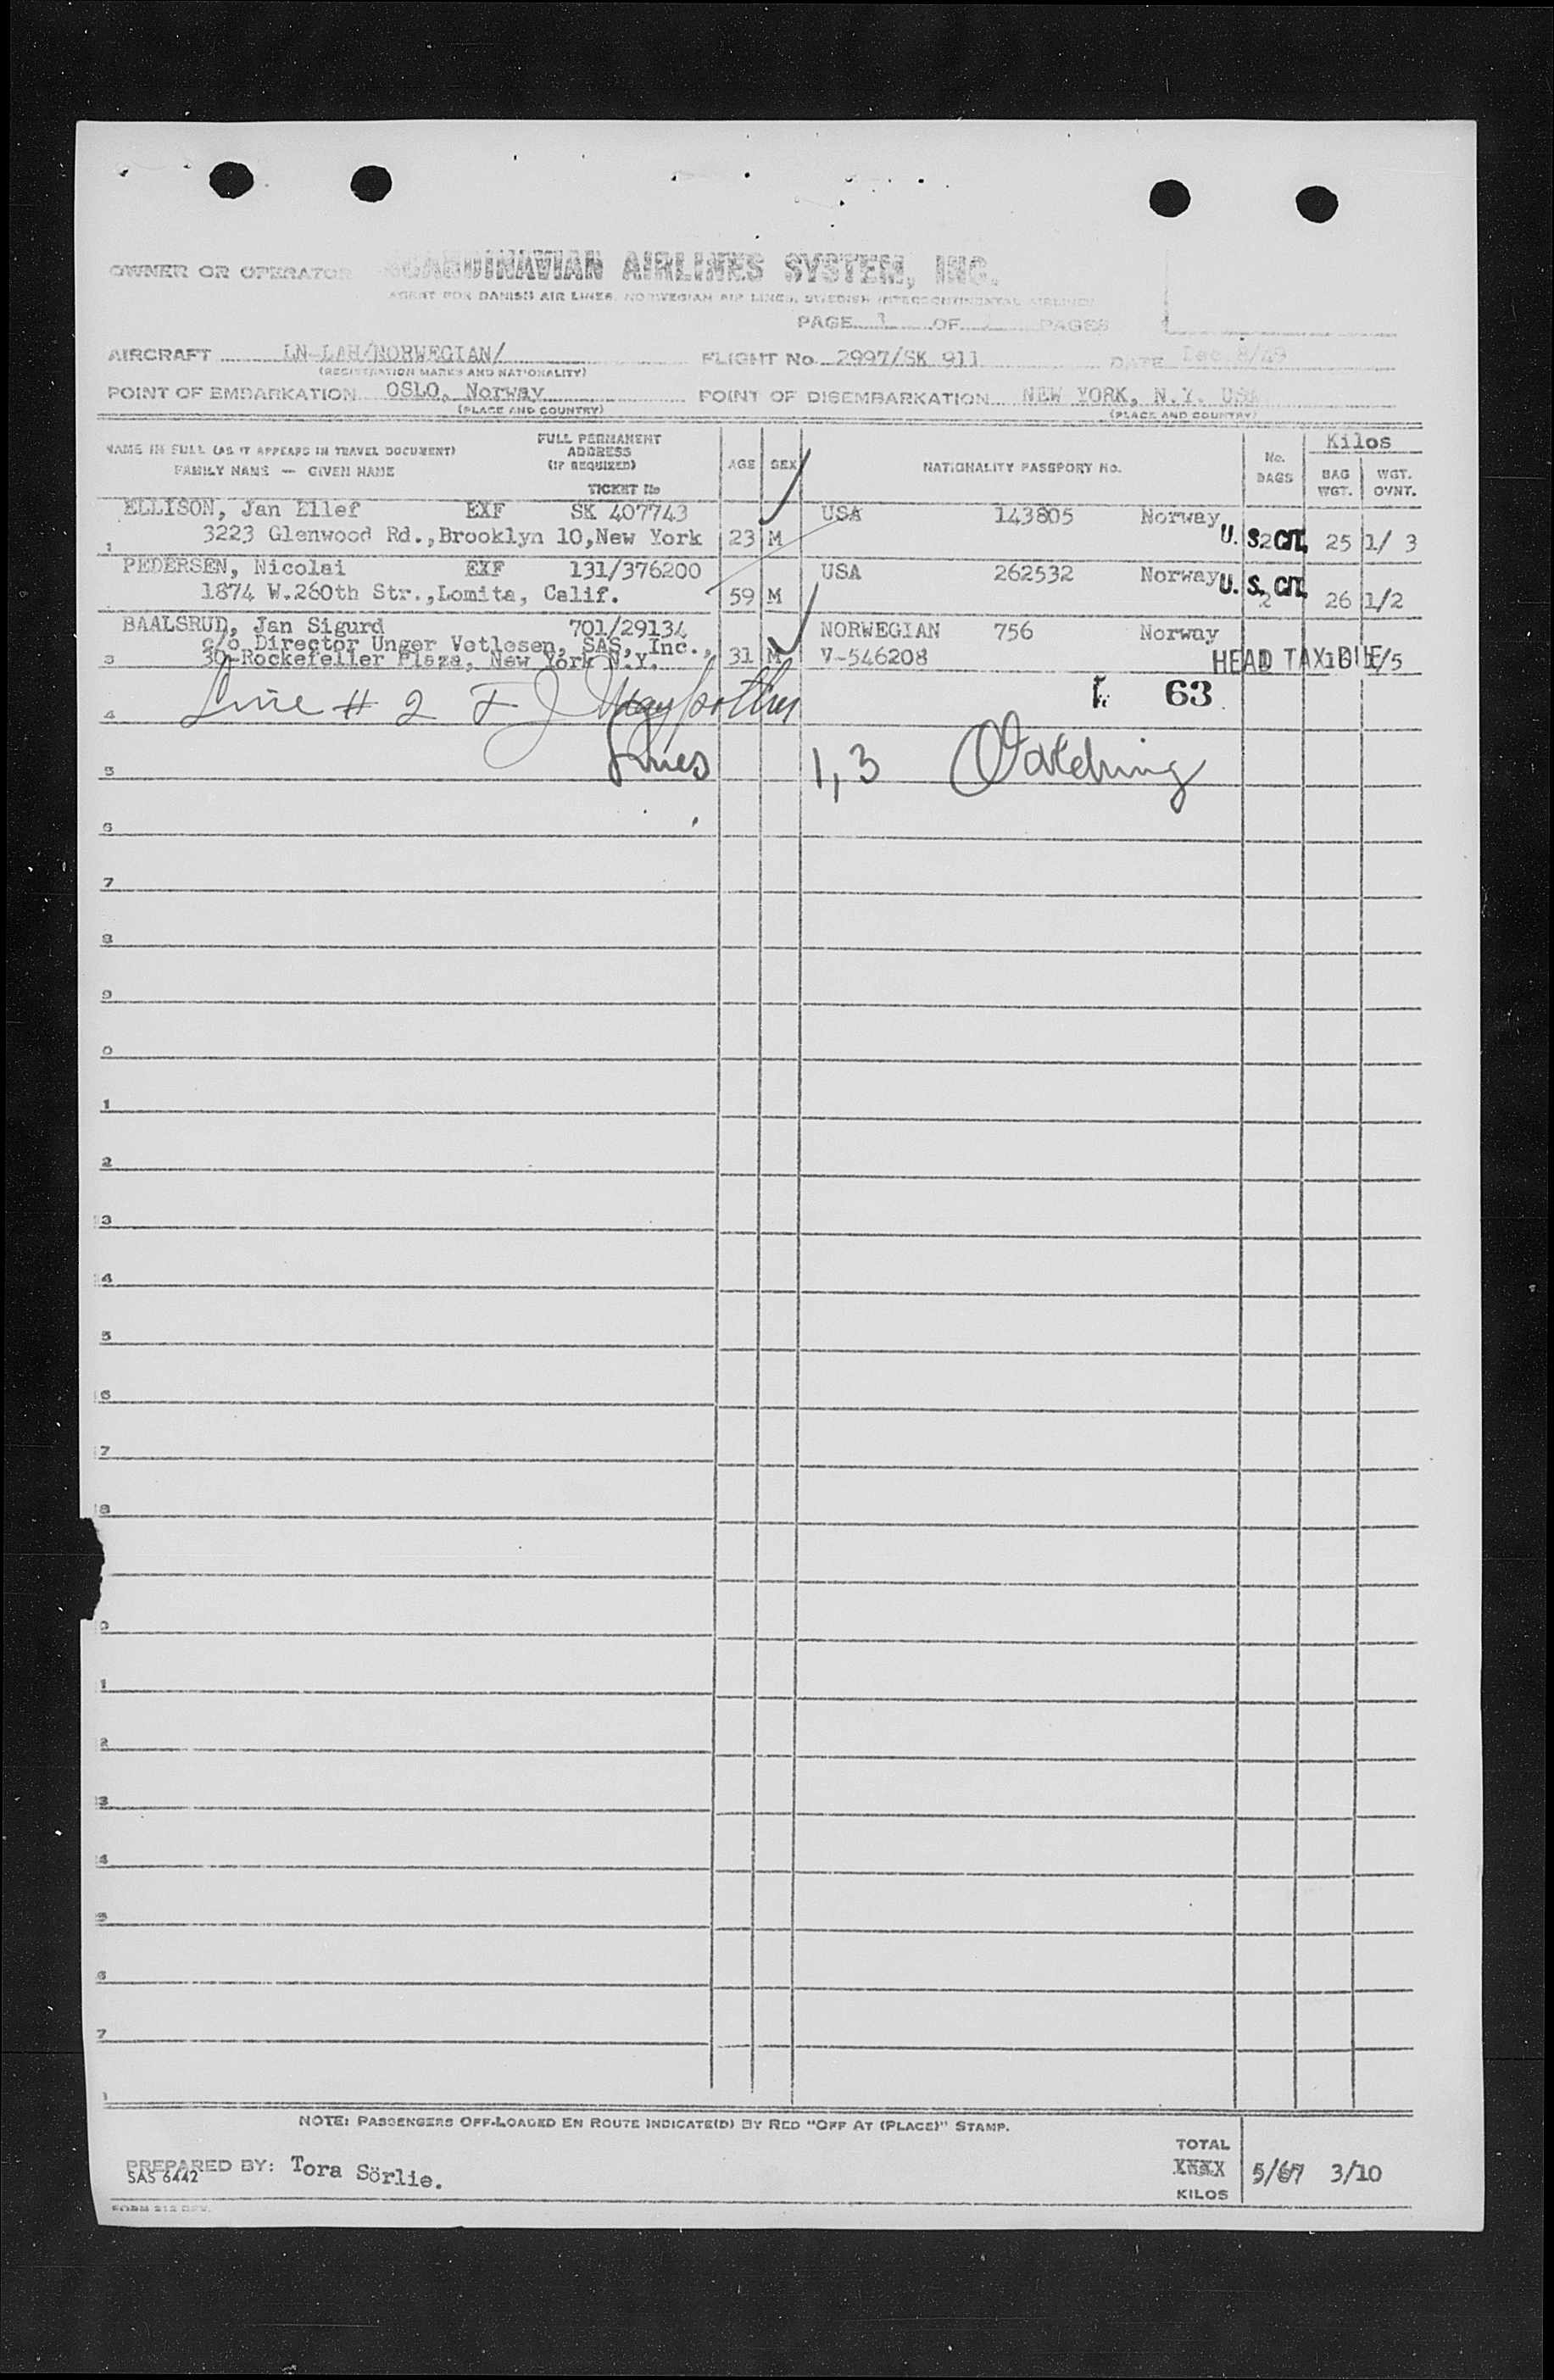 OWNER OR OPERATOR SCANDINAVIAN AIRLINES SYSTEM, INC.
AGENT FOR DANISH AIR LINES, NORWEGIAN AIR LINES, SWEDISH INTERCONTINENTAL AIRLINES
PAGE 1 OF PAGES
AIRCRAFT LN-LAH/NORWEGIAN/ FLIGHT No. 2997/SK 911 DATE Dec. 8/49
(REGISTRATION MARKS AND NATIONALITY)
POINT OF EMBARKATION OSLO, Norway POINT OF DISEMBARKATION NEW YORK, N.Y. USA
(PLACE AND COUNTRY) (PLACE AND COUNTRY)
NAME IN FULL (AS IT APPEARS IN TRAVEL DOCUMENT) FULL PERMANENT ADDRESS (IF REQUIRED) AGE SEX NATIONALITY PASSPORT No. No. BAGS Kilos
FAMILY NAME — GIVEN NAME TICKET No BAG WGT. WGT. OVNT.
ELLISON, Jan Ellef EXF SK 407743 USA 143805 Norway
1 3223 Glenwood Rd.,Brooklyn 10,New York 23 M U. S. CIT. 2 25 1/ 3
PEDERSEN, Nicolai EXF 131/376200 USA 262532 Norway U. S. CIT.
1874 W.260th Str.,Lomita, Calif. 59 M 2 26 1/2
BAALSRUD, Jan Sigurd 701/29134 NORWEGIAN 756 Norway
c/o Director Unger Vetlesen, SAS, Inc.,
3 30-Rockefeller Plaza, New York N.Y. 31 M V-546208 HEAD TAX DUE 1 16 1/5
63
4 Line # 2
5 Lines 1,3
6
7
8
9
0
1
2
3
4
5
6
7
8
0
1
2
3
4
5
6
7
1
NOTE: PASSENGERS OFF-LOADED EN ROUTE INDICATE(D) BY RED "OFF AT (PLACE)" STAMP.
TOTAL
PREPARED BY: Tora Sörlie. 5/67 3/10
SAS 6442
KILOS
FORM 212 REV.